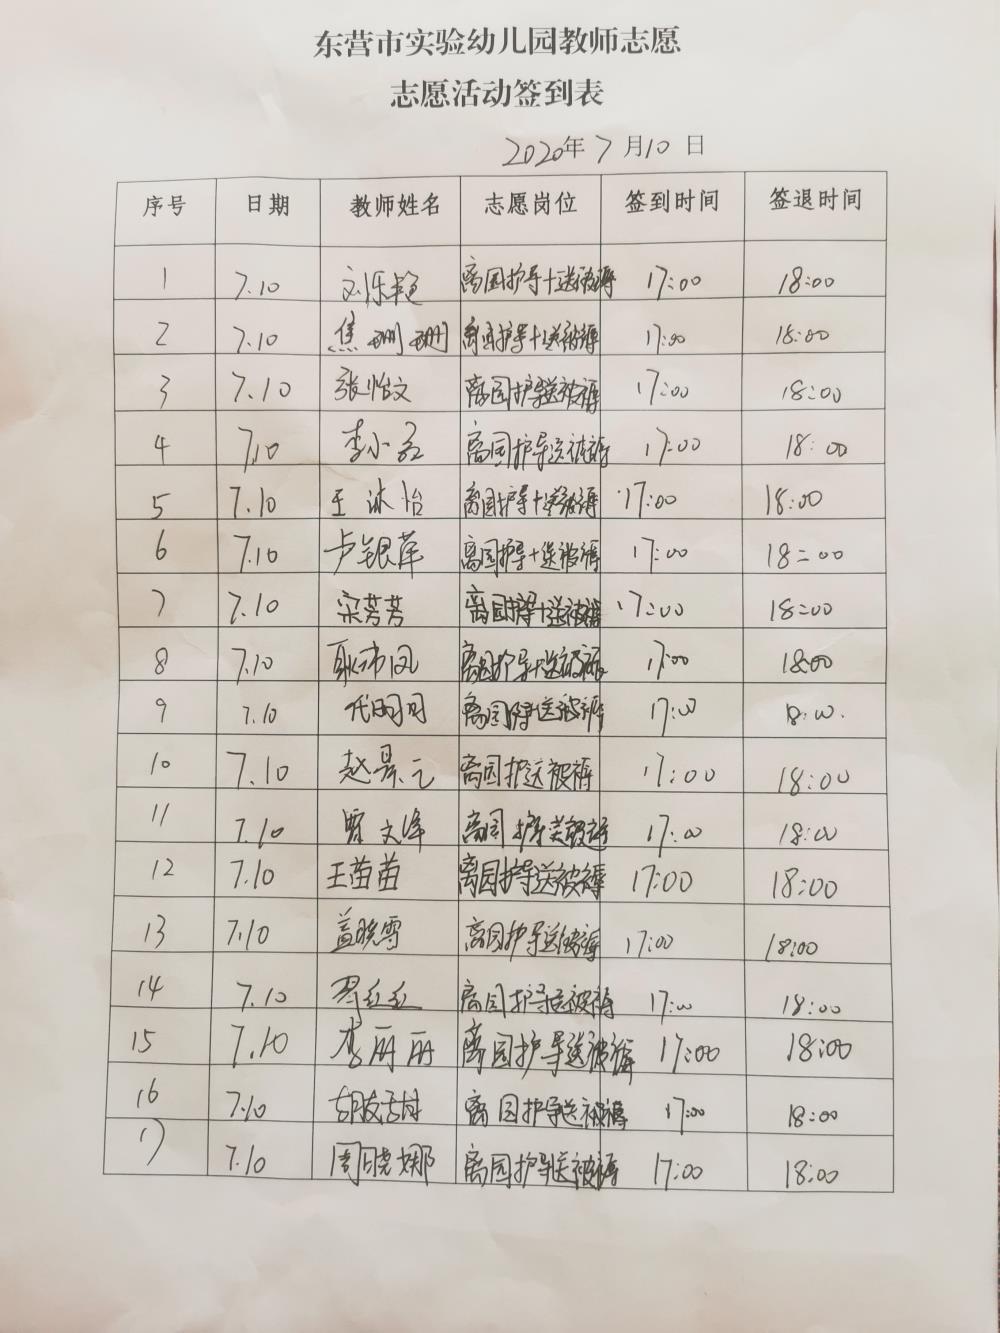 东营市实验幼儿园教师志愿
志愿活动签到表
2020年7月10日
序号 日期 教师姓名 志愿岗位 签到时间 签退时间
1 7.10 离园护导+送被褥 17:00 18:00
2 7.10 焦珊珊 离园护导+送被褥 17:00 18:00
3 7.10 张怡文 离园护导送被褥 17:00 18:00
4 7.10 李小 离园护导送被褥 17:00 18:00
5 7.10 王冰怡 离园护导+送被褥 17:00 18:00
6 7.10 卢银萍 离园护导+送被褥 17:00 18:00
7 7.10 宋芳芳 离园护导+送被褥 17:00 18:00
8 7.10 耿 凤 离园护导+送被褥 17:00 18:00
9 7.10 代明月 离园护导送被褥 17:00 18:00.
10 7.10 赵景元 离园护送被褥 17:00 18:00
11 7.10 贾文泽 离园护导送被褥 17:00 18:00
12 7.10 王苗苗 离园护导送被褥 17:00 18:00
13 7.10 盖晓雪 离园护导送被褥 17:00 18:00
14 7.10 红红 离园护导送被褥 17:00 18:00
15 7.10 李丽丽 离园护导送被褥 17:00 18:00
16 7.10 胡 离园护导送被褥 17:00 18:00
17 7.10 周晓娜 离园护导送被褥 17:00 18:00